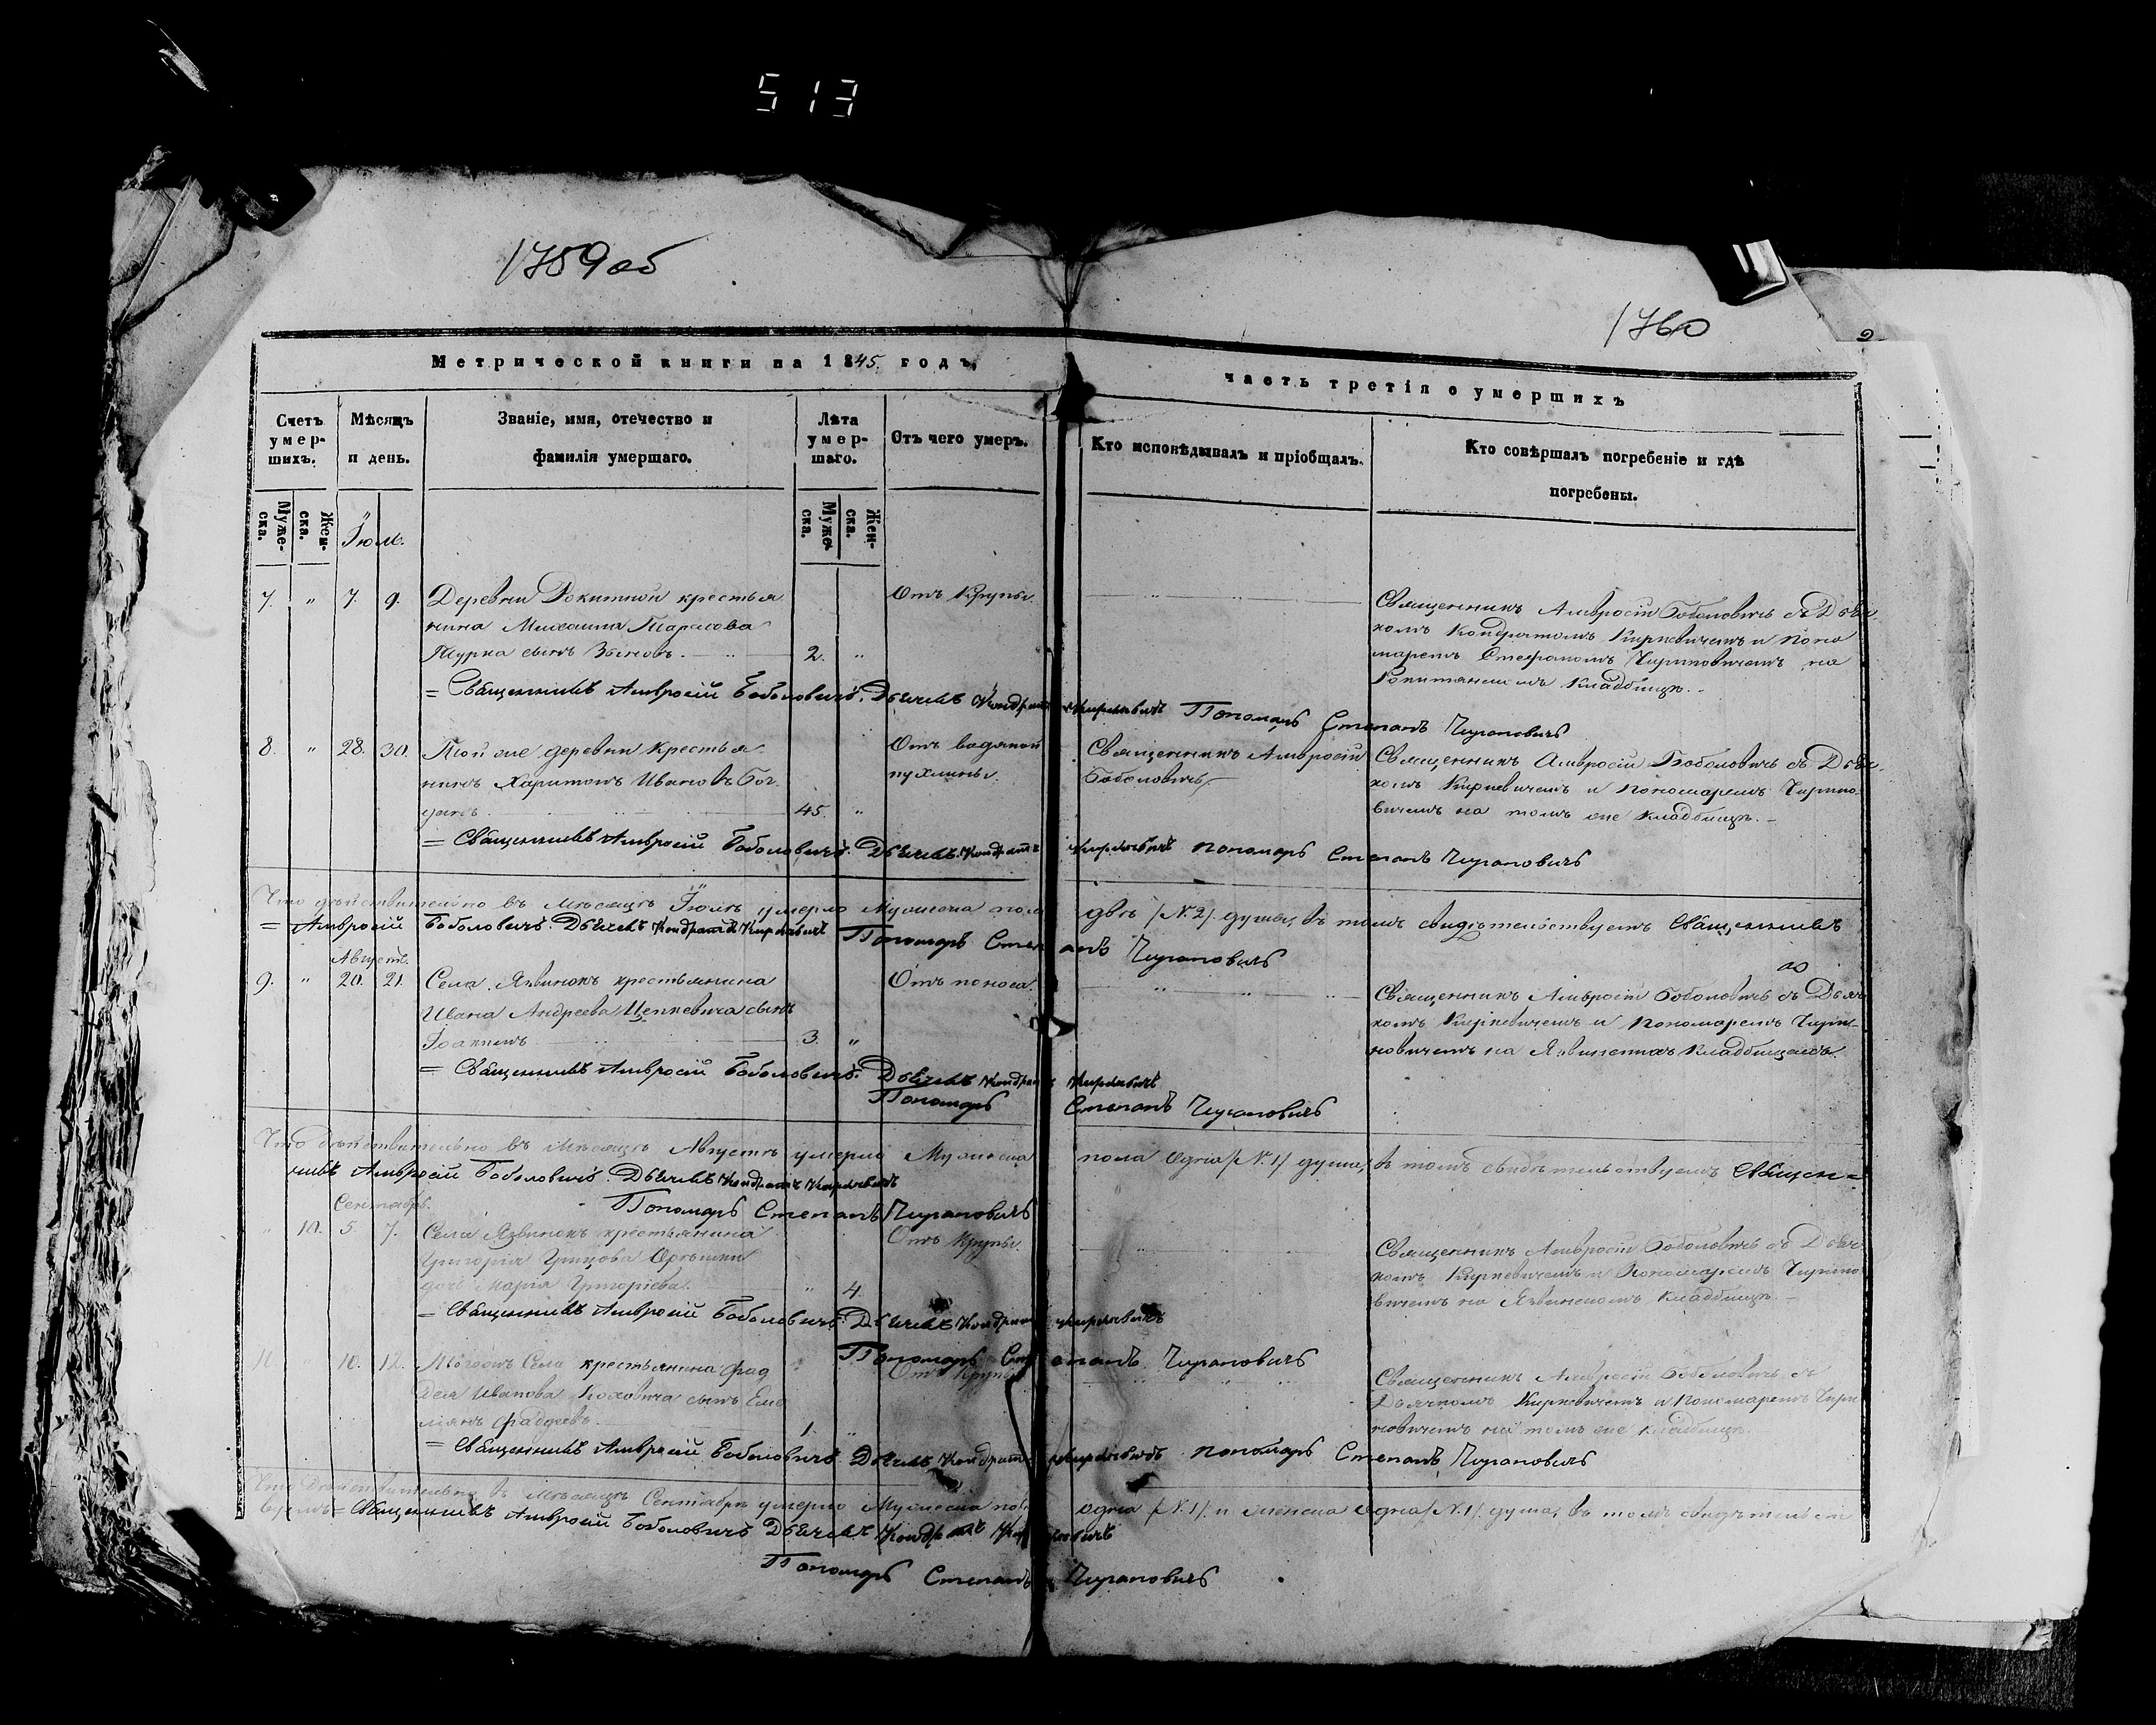 513
1759об
1760
Метрической книги на 1845. годъ,
часть третія о умершихъ
Счетъ умер-шихъ.
Мѣсяцъ и день.
Званіе, имя, отечество и фамилія умершаго.
Лѣта умер-шаго.
Отъ чего умеръ.
Кто исповѣдывалъ и пріобщалъ.
Кто совѣршалъ погребеніе и гдѣ погребены.
Муже-ска.
Жен-ска.
Муже-ска.
Жен-ска.
Іюль.
7. " 7. 9. Деревни Рокитной крестья
нина Михаила Тарасова
сынъ 2. "
Отъ Крупы.
Священникъ Амвросій Боболовичъ съ Дьяч
комъ Кондратомъ Киркевичемъ и Поно
маремъ Стефаномъ на
кладбищѣ.
= Священникъ Амвросій Боболовичъ. Дьячекъ Кондратъ Киркевичъ Пономарь Степанъ
8. " 28. 30. Той же деревни Крестья
нинъ Харитонъ Ивановъ Бог
данъ 45. "
Отъ водяной
пухлины.
Священникъ Амвросій
Боболовичъ.
Священникъ Амвросій Боболовичъ съ Дьяч
комъ Киркевичемъ и Пономаремъ
на томъ же кладбищѣ.
= Священникъ Амвросій Боболовичъ. Дьячекъ Кондратъ Киркевичъ Пономарь Степанъ
Что дѣйствительно въ Мѣсяцѣ Іюлѣ умерло Мужеска пола двѣ /№ 2/ души, въ томъ свидѣтельствуетъ Священникъ
= Амвросій Боболовичъ. Дьячекъ Кондратъ Киркевичъ Пономарь Степанъ
Августъ.
9. " 20. 21. Села Язвинокъ крестьянина
Ивана Андреева сынъ
Іоаннъ 3. "
Отъ поноса.
Священникъ Амвросій Боболовичъ съ Дьяч
комъ Киркевичемъ и Пономаремъ
на кладбищахъ.
= Священникъ Амвросій Боболовичъ. Дьячекъ Кондратъ Киркевичъ
Пономарь Степанъ
Что дѣйствительно въ Мѣсяцѣ Августѣ умерло Мужеска пола одна /№ 1/ душа, въ томъ свидѣтельствуетъ Священ=
никъ Амвросій Боболовичъ. Дьячекъ Кондратъ Киркевичъ
Пономарь Степанъ
Сентябрь.
" 10. 5. 7. Села Язвинокъ крестьянина
Григорія
дочь Марія Григоріева. " 4.
Отъ Крупы.
Священникъ Амвросій Боболовичъ съ Дьяч
комъ Киркевичемъ и Пономаремъ
на Язвинскомъ кладбищѣ.
= Священникъ Амвросій Боболовичъ. Дьячекъ Кондратъ Киркевичъ
Пономарь Степанъ
10. 12. Села крестьянина Фад
дея Иванова сынъ Еме
льянъ Фаддеевъ 1. "
Отъ Крупы
Священникъ Амвросій Боболовичъ съ
Дьячкомъ Киркевичемъ и Пономаремъ
на томъ же кладбищѣ.
= Священникъ Амвросій Боболовичъ Дьячекъ Кондратъ Киркевичъ Пономарь Степанъ
Что дѣйствительно въ Мѣсяцѣ Сентябрѣ умерло Мужеска пола одна /№ 1/ и женска одна /№ 1/ душа, въ томъ свидѣтельст
вуетъ = Священникъ Амвросій Боболовичъ Дьячекъ Кондратъ Киркевичъ
Пономарь Степанъ